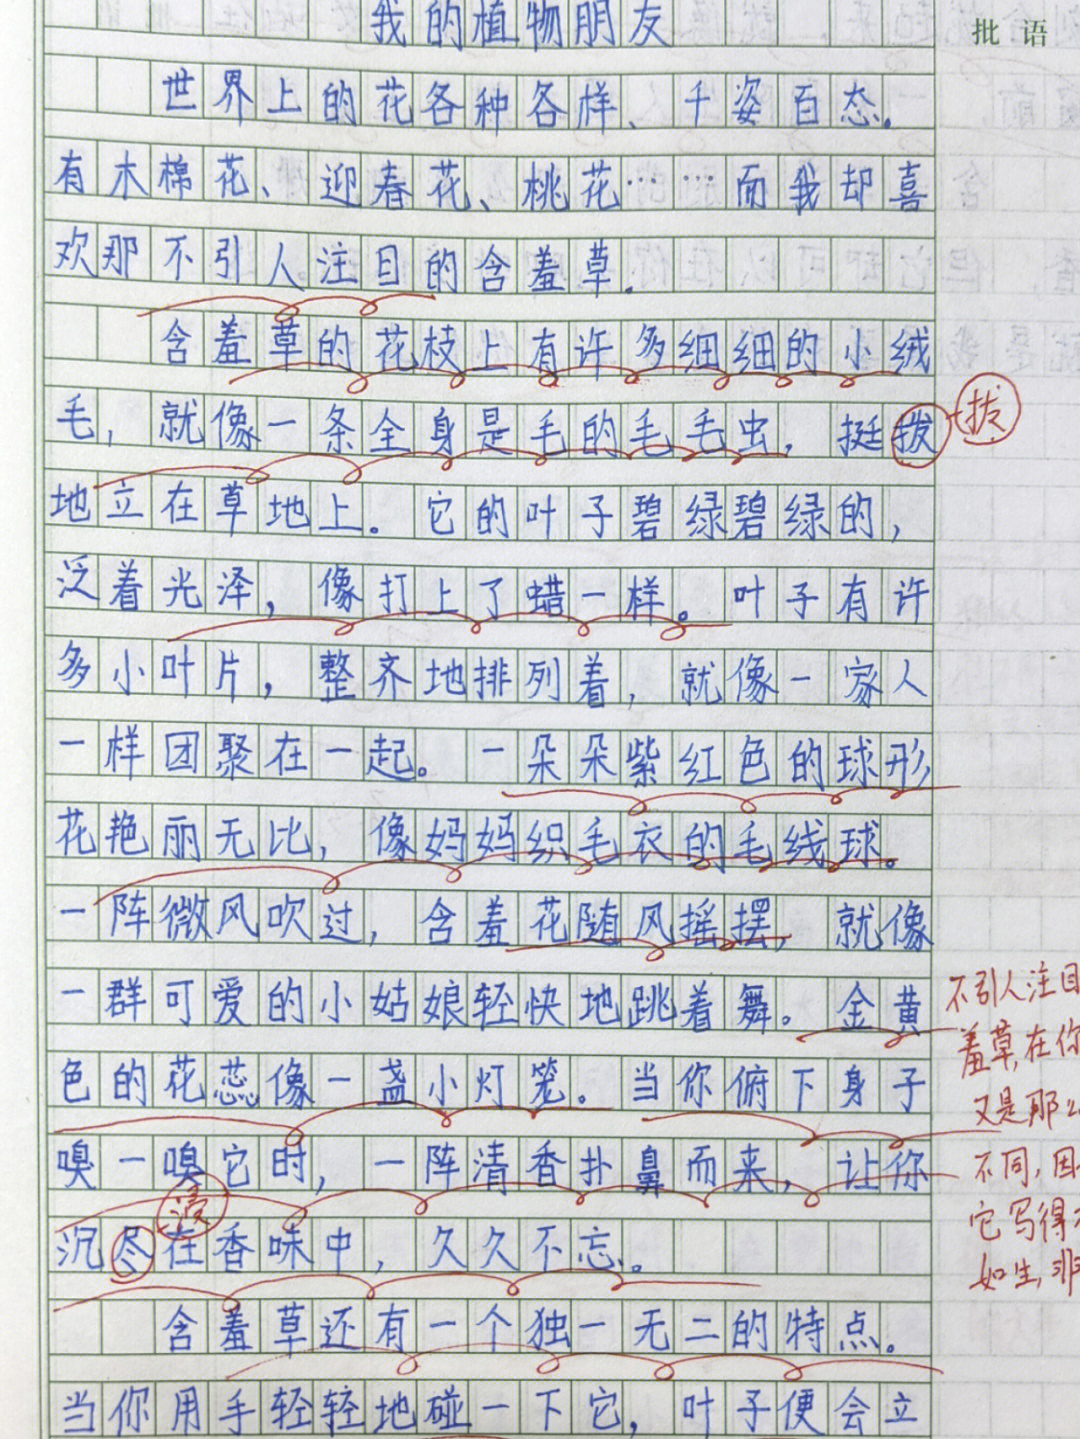 我的植物朋友
批语
世界上的花各种各样、千姿百态。
有木棉花、迎春花、桃花……而我却喜
欢那不引人注目的含羞草。
含羞草的花枝上有许多细细的小绒
毛，就像一条全身是毛的毛毛虫，挺拨
拔
地立在草地上。它的叶子碧绿碧绿的，
泛着光泽，像打上了蜡一样。叶子有许
多小叶片，整齐地排列着，就像一家人
一样团聚在一起。一朵朵紫红色的球形
花艳丽无比，像妈妈织毛衣的毛线球。
一阵微风吹过，含羞花随风摇摆，就像
一群可爱的小姑娘轻快地跳着舞。金黄
色的花蕊像一盏小灯笼。当你俯下身子
嗅一嗅它时，一阵清香扑鼻而来，让你
浸
沉尽在香味中，久久不忘。
含羞草还有一个独一无二的特点。
当你用手轻轻地碰一下它，叶子便会立
不引人注目
羞草，在你
又是那么
不同，因
它写得
如生，非